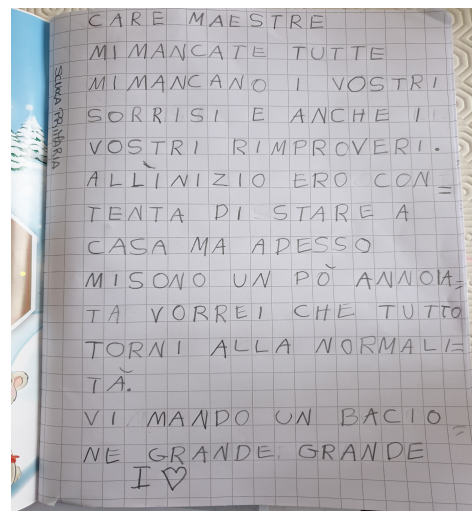 CARE MAESTRE
MI MANCATE TUTTE
MI MANCANO I VOSTRI
SORRISI E ANCHE I
VOSTRI RIMPROVERI.
ALL'INIZIO ERO CON=
TENTA DI STARE A
CASA MA ADESSO
MI SONO UN PÒ ANNOIA=
TA VORREI CHE TUTTO
TORNI ALLA NORMALI=
TÀ.
VI MANDO UN BACIO=
NE GRANDE GRANDE
I♡
SCUOLA PRIMARIA